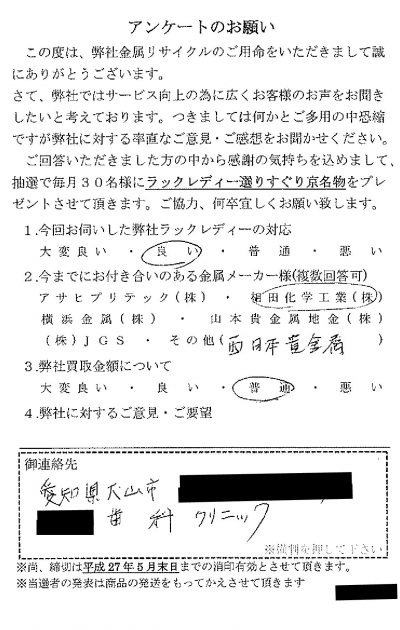 アンケートのお願い
この度は、弊社金属リサイクルのご用命をいただきまして誠
にありがとうございます。
さて、弊社ではサービス向上の為に広くお客様のお声をお聞き
したいと考えております。つきましては何かとご多用の中恐縮
ですが弊社に対する率直なご意見・ご感想をお聞かせください。
ご回答いただきました方の中から感謝の気持ちを込めまして、
抽選で毎月３０名様にラックレディー選りすぐり京名物をプレ
ゼントさせて頂きます。ご協力、何卒宜しくお願い致します。
１.今回お伺いした弊社ラックレディーの対応
大変良い ・ 良い ・ 普通 ・ 悪い
２.今までにお付き合いのある金属メーカー様(複数回答可)
アサヒプリテック(株) ・ 相田化学工業(株)
横浜金属(株) ・ 山本貴金属地金(株)
(株)ＪＧＳ ・ その他(西日本貴金属
３.弊社買取金額について
大変良い ・ 良い ・ 普通 ・ 悪い
４.弊社に対するご意見・ご要望
御連絡先
愛知県犬山市
歯科クリニック
※尚、締切は平成27年5月末日までの消印有効とさせて頂きます。
※当選者の発表は商品の発送をもってかえさせて頂きます